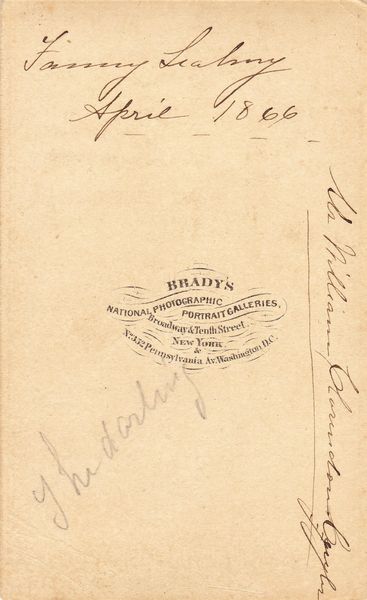 Fanny
April 1866
BRADY'S
NATIONAL PHOTOGRAPHIC
PORTRAIT GALLERIES,
Broadway & Tenth Street
NEW YORK
&
No. 352 Pennsylvania Av. Washington D.C.
darling
William